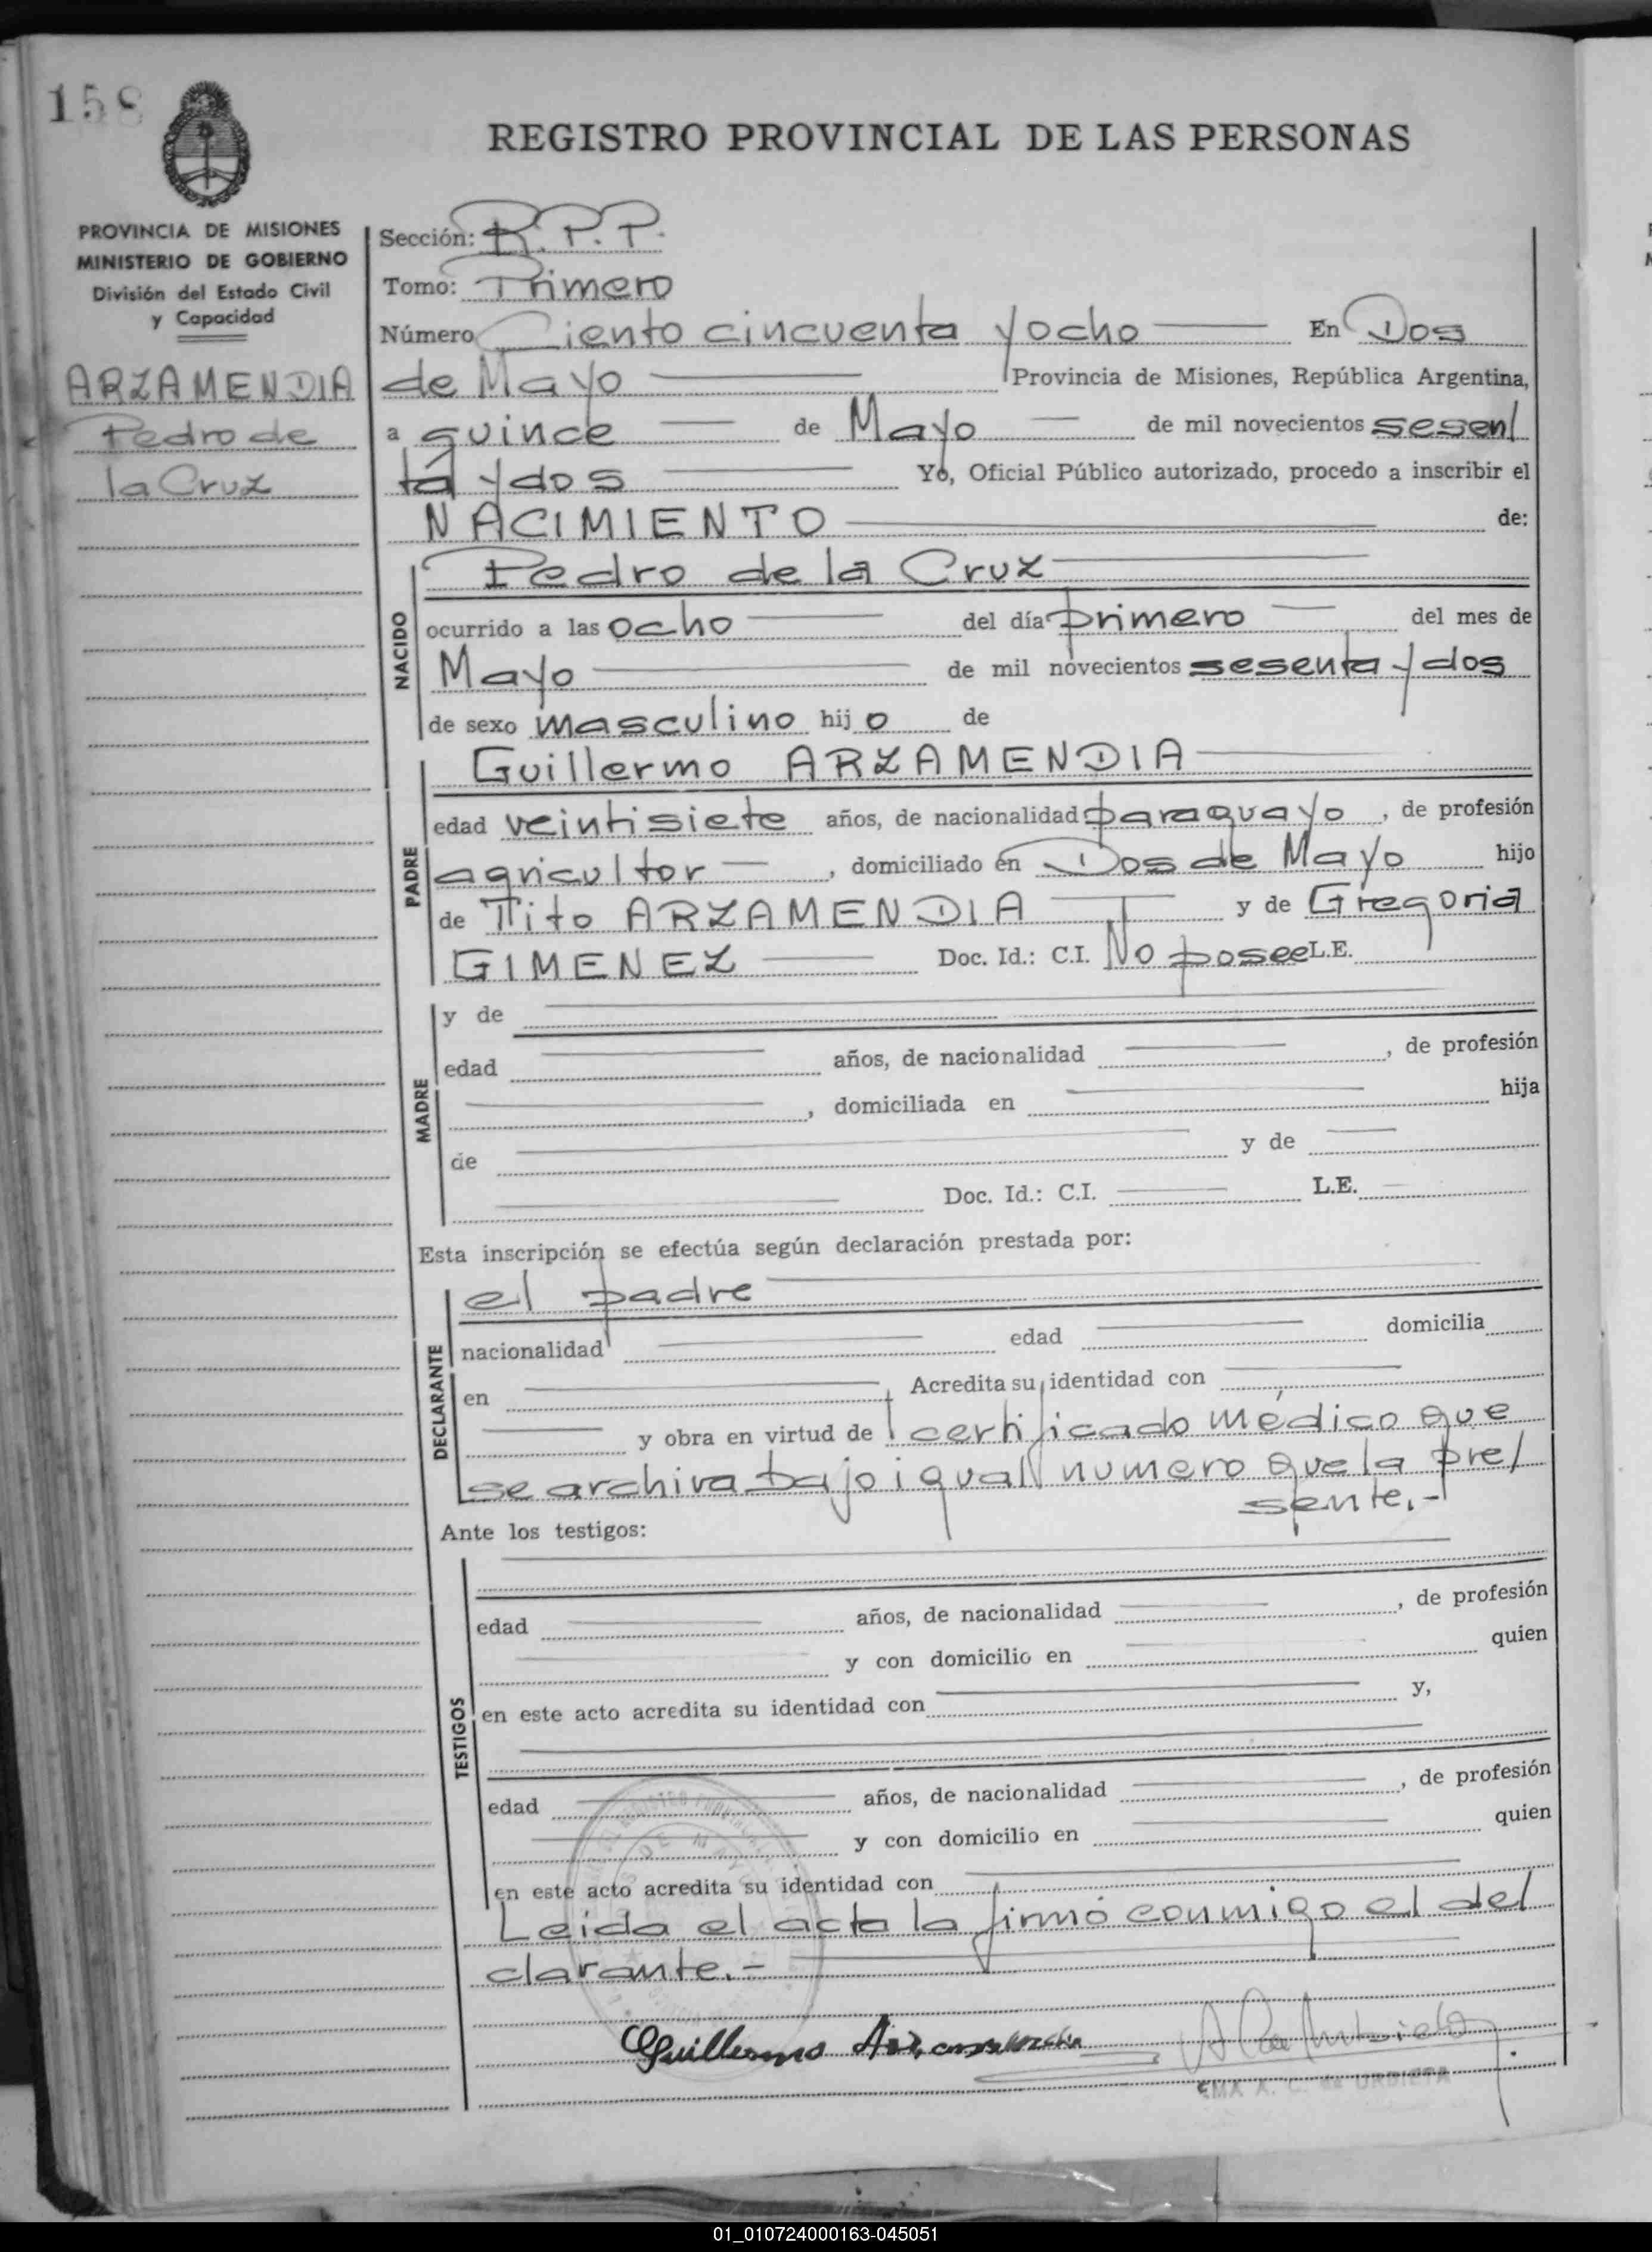 158
REGISTRO PROVINCIAL DE LAS PERSONAS
PROVINCIA DE MISIONES
MINISTERIO DE GOBIERNO
División del Estado Civil
y Capacidad
ARZAMENDIA
Pedro de
la Cruz
Sección: R.P.P.
Tomo: Primero
Número Ciento cincuenta y ocho En Dos
de Mayo Provincia de Misiones, República Argentina,
a quince de Mayo de mil novecientos sesen/
ta y dos Yo, Oficial Público autorizado, procedo a inscribir el
NACIMIENTO de:
NACIDO
Pedro de la Cruz
ocurrido a las ocho del día primero del mes de
Mayo de mil novecientos sesenta y dos
de sexo masculino hijo de
PADRE
Guillermo ARZAMENDIA
edad veintisiete años, de nacionalidad paraguayo, de profesión
agricultor, domiciliado en Dos de Mayo hijo
de Tito ARZAMENDIA y de Gregoria
GIMENEZ Doc. Id.: C.I. No posee L.E.
MADRE
y de
edad años, de nacionalidad , de profesión
, domiciliada en hija
de y de
Doc. Id.: C.I. L.E.
Esta inscripción se efectúa según declaración prestada por:
DECLARANTE
el padre
nacionalidad edad domicilia
en Acredita su identidad con
y obra en virtud de certificado médico que
se archiva bajo igual numero que la pre/
sente.-
Ante los testigos:
TESTIGOS
edad años, de nacionalidad , de profesión
y con domicilio en quien
en este acto acredita su identidad con y,
edad años, de nacionalidad , de profesión
y con domicilio en quien
en este acto acredita su identidad con
Leida el acta la firmó conmigo el de/
clarante.-
Guillermo Arzamendia
EMA A. C. de URBIETA
01_010724000163-045051